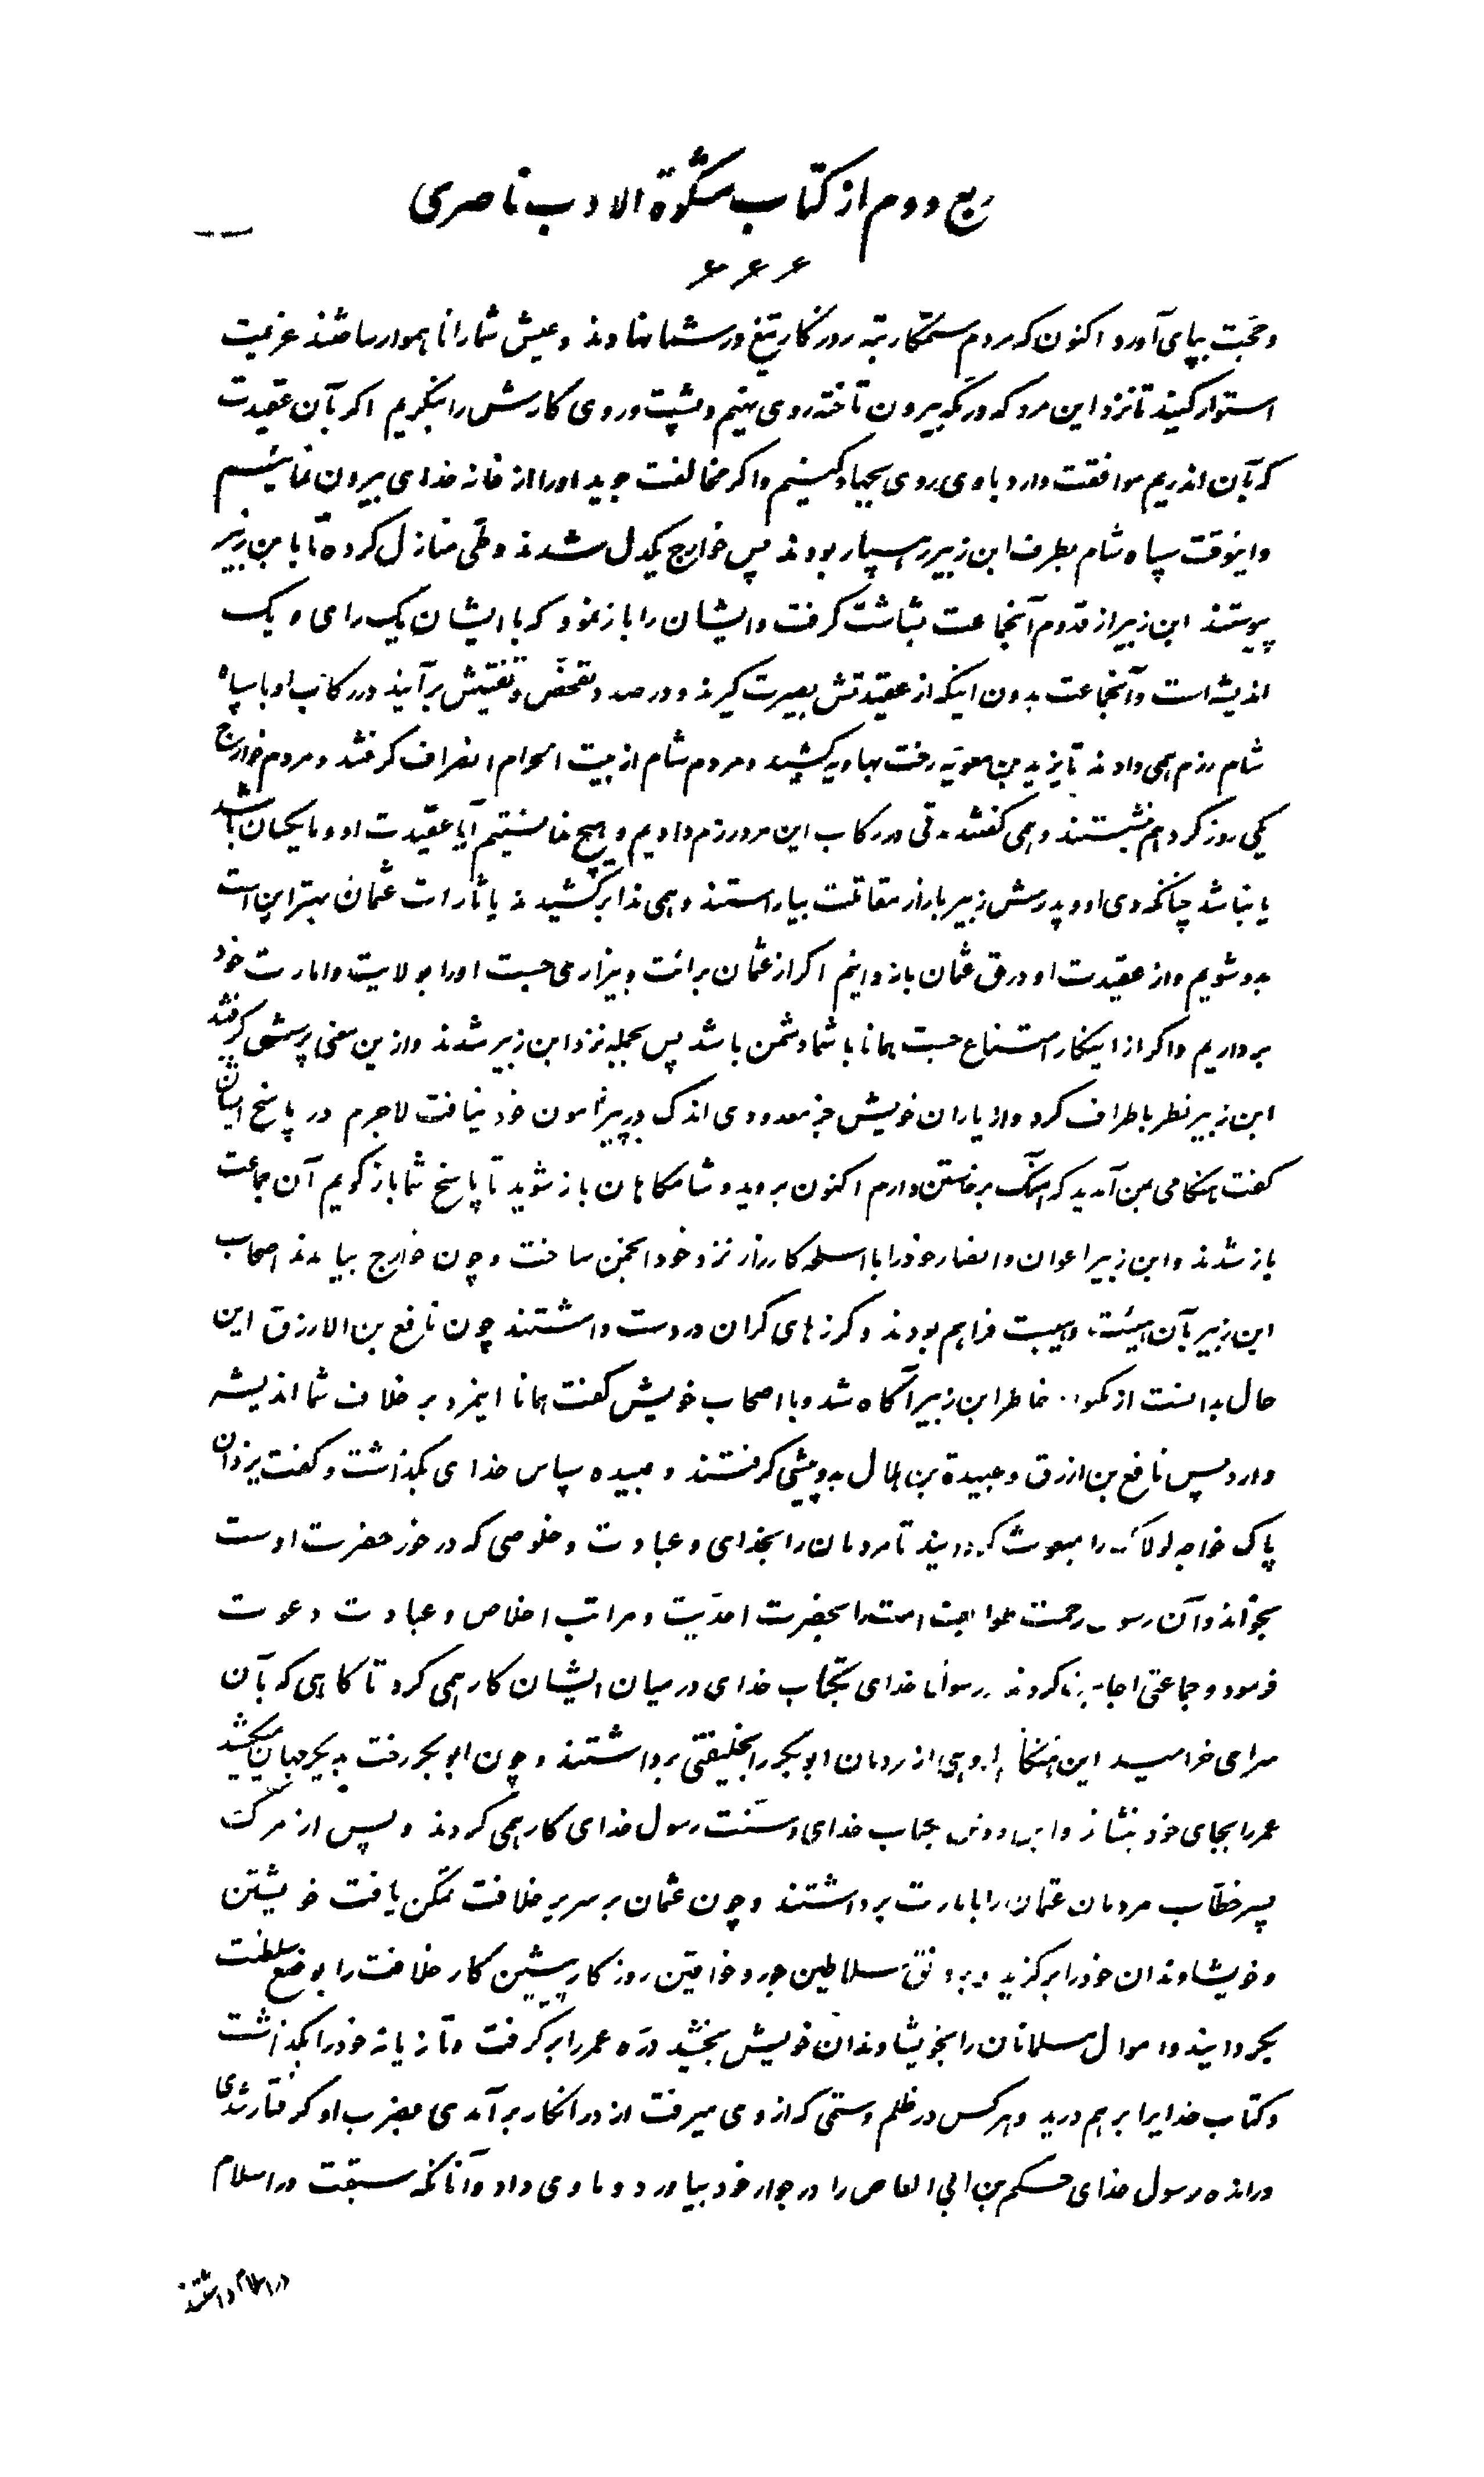 ربع دوم از کتاب مشکوة الادب ناصری
۶۶۶
و حجّت بپای آورد اکنون که مردم ستمکار تبه روزگار تیغ در شما نهادند و عیش شما را ناهموار ساختند عزیمت
استوار کنید تا نزد این مرد که در مکه بیرون تاخته روی نهیم و پشت و روی کارش را بنگریم اگر بآن عقیدت
که بآن اندریم موافقت دارد با وی روی بجهاد کنیم و اگر مخالفت جوید او را از خانه خدای بیرون نمائیم
و اینوقت سپاه شام بطرف ابن زبیر رهسپار بودند پس خوارج یکدل شدند و طی منازل کرده تا با بن زبیر
پیوستند ابن زبیر از قدوم آنجماعت بشاشت گرفت و ایشان را باز نمود که با ایشان یک رای و یک
اندیشه است و آنجماعت بدون اینکه از عقیدتش بصیرت گیرند و در صدد تفحّص و تفتیش برآیند در رکاب او با سپاه
شام رزم همی دادند تا یزید بن معویه رخت بهاویه کشید و مردم شام از بیت الحرام انصراف گرفتند و مردم خوارج
یکی روز گرد هم نشستند و همی گفتند مدتی در رکاب این مرد رزم دادیم و هیچ ندانستیم آیا عقیدت او و ما یکسان باشد
یا نباشد چنانکه دی او و پدرش زبیر بازار مقاتلت بیاراستند و همی ندا برکشیدند یا ثارات عثمان بهتر این است
بدو شویم و از عقیدت او در حق عثمان باز دانیم اگر از عثمان برائت و بیزاری جست او را بولایت و امارت خود
برداریم و اگر از اینکار امتناع جست همانا با شما دشمن باشد پس بجمله نزد ابن زبیر شدند و ازین معنی پرسش گرفتند
ابن زبیر نظر باطراف کرد و از یاران خویش جز معدودی اندک در پیرامون خود نیافت لاجرم در پاسخ ایشان
گفت هنگامی بمن آمدید که آهنگ برخاستن دارم اکنون بروید و شامگاهان باز شوید تا پاسخ شما باز گویم آن جماعت
باز شدند و ابن زبیر اعوان و انصار خود را با اسلحه کارزار نزد خود انجمن ساخت و چون خوارج بیامدند اصحاب
ابن زبیر بآن هیئت و هیبت فراهم بودند و گرزهای گران در دست داشتند چون نافع بن الارزق این
حال بدانست از خاطر ابن زبیر آگاه شد و با اصحاب خویش گفت همانا اینمرد بر خلاف شما اندیشه
دارد پس نافع بن ازرق و عبیدة بن هلال بدو پیشی گرفتند و عبیده سپاس خدای بگذاشت و گفت یزدان
پاک خواجه لولاک را مبعوث گردانید تا مردمان را بخدای و عبادت و خلوصی که در خور حضرت اوست
بخواند و آن رسول رحمت امت را بحضرت احدیت و مراتب اخلاص و عبادت دعوت
فرمود و جماعتی اجابت کردند رسول خدای بکتاب خدای در میان ایشان کار همی کرد تا گاهی که بآن
سرای خرامید این هنگام از مردمان ابوبکر را بخلیفتی برداشتند و چون ابوبکر رخت بدیگر جهان میکشید
عمر را بجای خود بنشاند و این هر دو تن بکتاب خدای و سنّت رسول خدای کار همی کردند و پس از مرگ
پسر خطّاب مردمان عثمان را بامارت برداشتند و چون عثمان بر سریر خلافت تمکّن یافت خویشتن
و خویشاوندان خود را برگزید و بر وفق سلاطین جور و خواقین روزگار پیشین کار خلافت را بوضع سلطنت
بگردانید و اموال مسلمانان را بخویشاوندان خویش بخشید درّه عمر را برگرفت و تازیانه خود را بگذاشت
و کتاب خدایرا بر هم درید و هر کس در ظلم و ستمی که از وی میرفت از در انکار برآمدی بضرب او گرفتار شدی
و رانده رسول خدای حکم بن ابی العاص را در جوار خود بیاورد و ماوی داد و آنانکه سبقت در اسلام
در اسلام داشتند